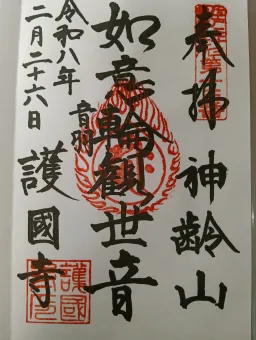 奉拝 神齢山
如意輪観世音
音羽 護國寺
令和八年
二月二十六日